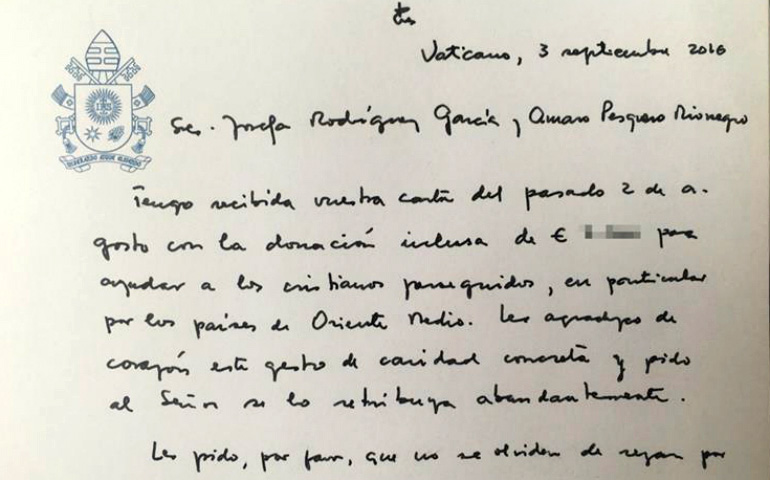 Vaticano, 3 septiembre 2016
Srs. Josefa Rodríguez García y Amaro Pesquero Rionegro
MISERANDO ATQUE ELIGENDO
Tengo recibida vuestra carta del pasado 2 de a-
gosto con la donación inclusa de € para
ayudar a los cristianos perseguidos, en particular
por los países de Oriente Medio. Les agradezco de
corazón este gesto de caridad concreta y pido
al Señor se lo retribuya abundantemente.
Les pido, por favor, que no se olviden de rezar por